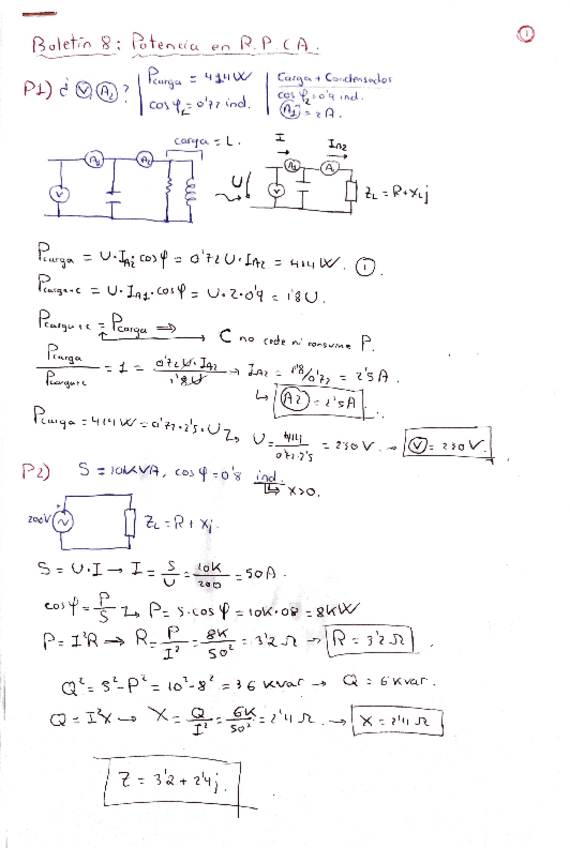 Boletín 8: Potencia en R.P.C.A.
1
P1) ¿ V, A2 ? Pcarga = 414W
cos φL = 0'72 ind.
Carga + Condensador
cos φ2 = 0'9 ind.
A1 = 2A.
carga = L.
I IA2
A1 A2 U A1 A2
V V ZL = R + XLj
Pcarga = U·IA2·cos φ = 0'72 U·IA2 = 414 W. 1
Pcarga+c = U·IA1·cos φ = U·2·0'9 = 1'8U.
Pcarga+c = Pcarga ⇒ C no cede ni consume P.
Pcarga / Pcarga+c = 1 = 0'72 U·IA2 / 1'8U → IA2 = 1'8/0'72 = 2'5A.
↳ A2 = 2'5A
Pcarga = 414W = 0'72·2'5·U ↳ U = 414 / 0'72·2'5 = 230V. → V = 230V.
P2) S = 10KVA, cos φ = 0'8 ind.
↳ X>0.
200V ZL = R + Xj.
S = U·I → I = S/U = 10K/200 = 50A.
cos φ = P/S ↳ P = S·cos φ = 10K·0'8 = 8KW
P = I²R → R = P/I² = 8K/50² = 3'2 Ω → R = 3'2 Ω.
Q² = S² - P² = 10² - 8² = 36 Kvar → Q = 6 Kvar.
Q = I²X → X = Q/I² = 6K/50² = 2'4 Ω. → X = 2'4 Ω
Z = 3'2 + 2'4j.